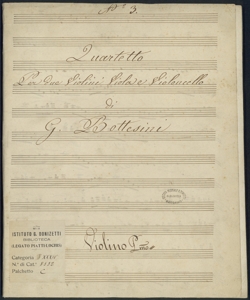 N.º 3.
Quartetto
Per due Violini Viola e Violoncello
di
G. Bottesini
ISTITUTO G. DONIZETTI
BIBLIOTECA
Categoria
N.º di Cat.
Palchetto C
Violino P.mo